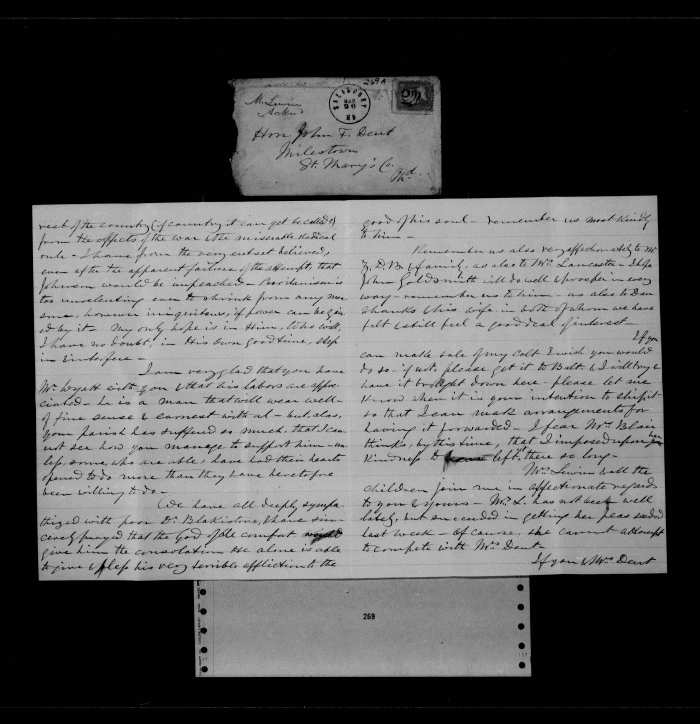 269 A
Mr Lewin
Ackn
SALISBURY
MAR
26
MD
Hon. John F. Dent
Milestown
St. Mary's Co.
Md.
rest of the country (if country it can yet be called)
from the effects of the war & the miserable radical
rule - I have from the very outset believed,
even after the apparent failure of the attempt, that
Johnson would be impeached - Puritanism is
too unrelenting ever to shrink from any mea
sure, however iniquitous, if power can be gain
ed by it - My only hope is in Him, who will,
I have no doubt, in His own good time, step
in &
I am very glad that you have
Mr Wyatt with you & that his labors are appre
ciated - he is a man that will wear well -
of fine sense & earnest with al - but alas,
your parish has suffered so much, that I can
not see how you manage to support him - un
less, some, who are able, have had their hearts
opened to do more than they have heretofore
been willing to do -
We have all deeply sympa
thized with poor Dr. Blakistone, & have sin
cerely prayed that the God of all comfort would
give him the consolation He alone is able
to give & bless his very terrible affliction to the
good of his soul - remember us most kindly
to him -
Remember us also very affectionately to Mr
Z. D. B. & family, as also to Mrs Lancaster - I hope
John Goldsmith will do well & prosper in every
way - remember us to him - as also to Dan
& his wife in both of whom we have
felt & still feel a good deal of interest -
If you
can make sale of my colt I wish you would
do so - if not, please get it to Balt. & I will try &
have it brought down here - please let me
know when it is your intention to ship it -
so that I can make arrangements for
having it forwarded - I fear Mrs Blair
thinks, by this time, that I imposed upon her
kindness to left there so long -
Mrs Lewin & all the
children join me in affectionate regards
to you & yours - Mrs L. has not been well
lately, but succeeded in getting her peas seeded
last week - of course, she cannot attempt
to compete with Mrs Dent -
If you & Mrs Dent
269